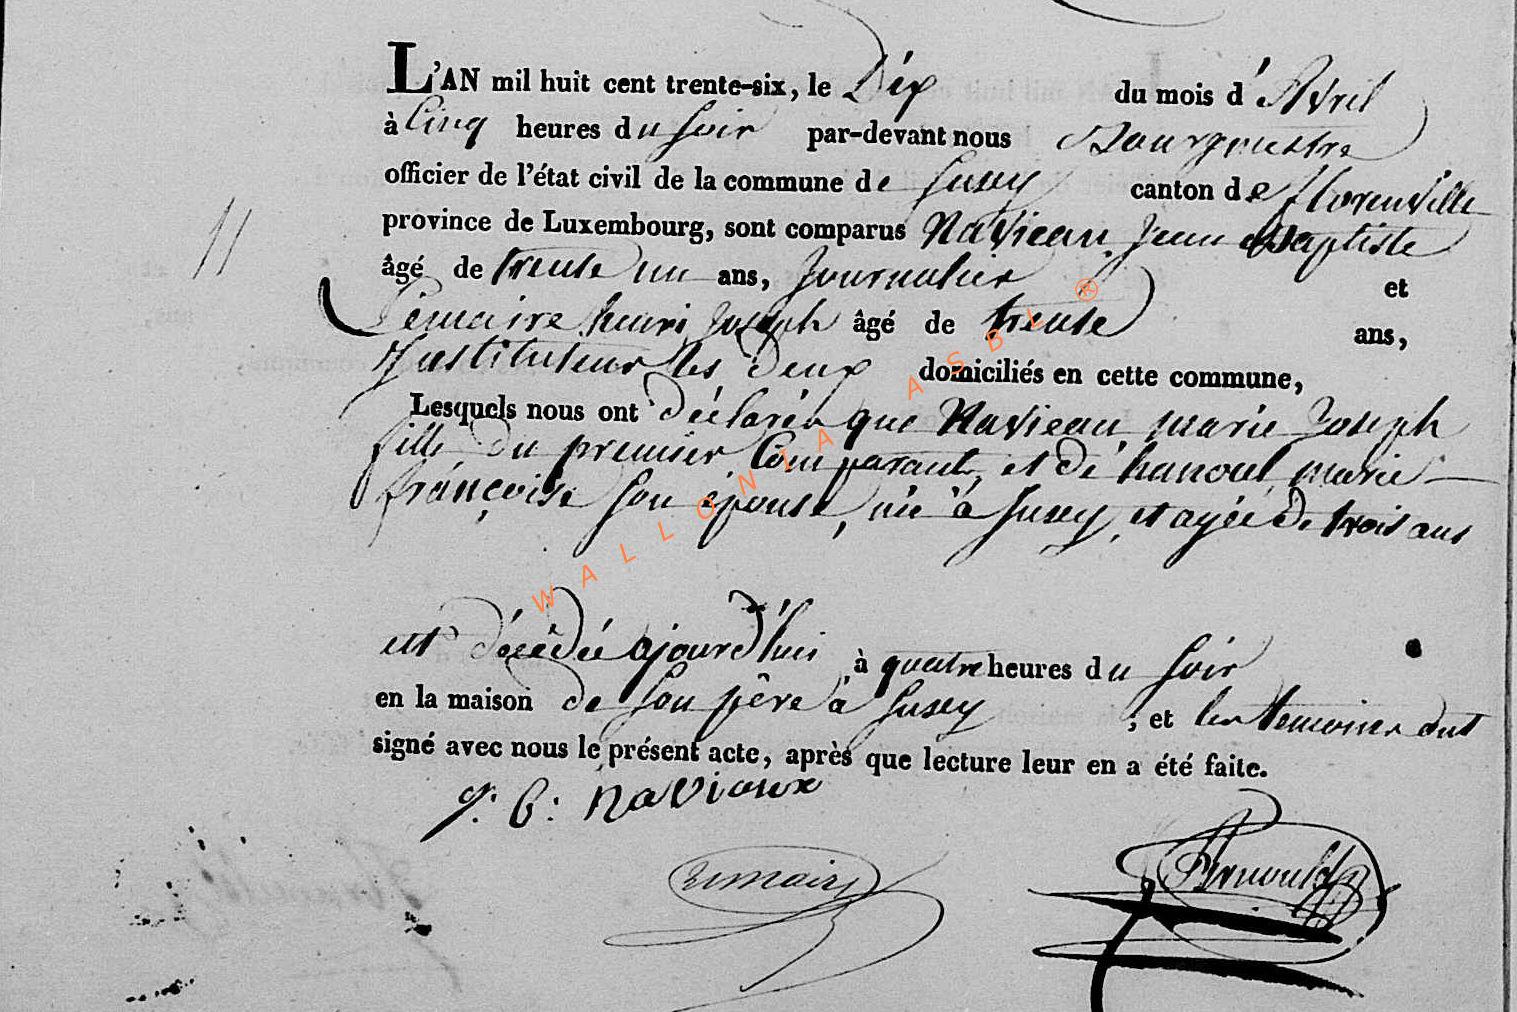 L'AN mil huit cent trente-six, le Dix du mois d'Avril
à Cinq heures du soir par-devant nous Bourgmestre
officier de l'état civil de la commune de Suxy canton de Florenville
province de Luxembourg, sont comparus Navieau Jean Baptiste
âgé de trente un ans, Journalier et
Lemaire henri Joseph âgé de trente ans,
Instituteur les deux domiciliés en cette commune,
Lesquels nous ont déclarés que Navieau marie Joseph
fille du premier Comparant, et de hanoul marie
françoise son épouse, née à Suxy, et agée de trois ans
11
est décédée ajourd'huis à quatre heures du soir
en la maison de son père à Suxy ; et les temoins ont
signé avec nous le présent acte, après que lecture leur en a été faite.
J. B: naviaux
Lemaire Arnould
WALLONIA ASBL ®